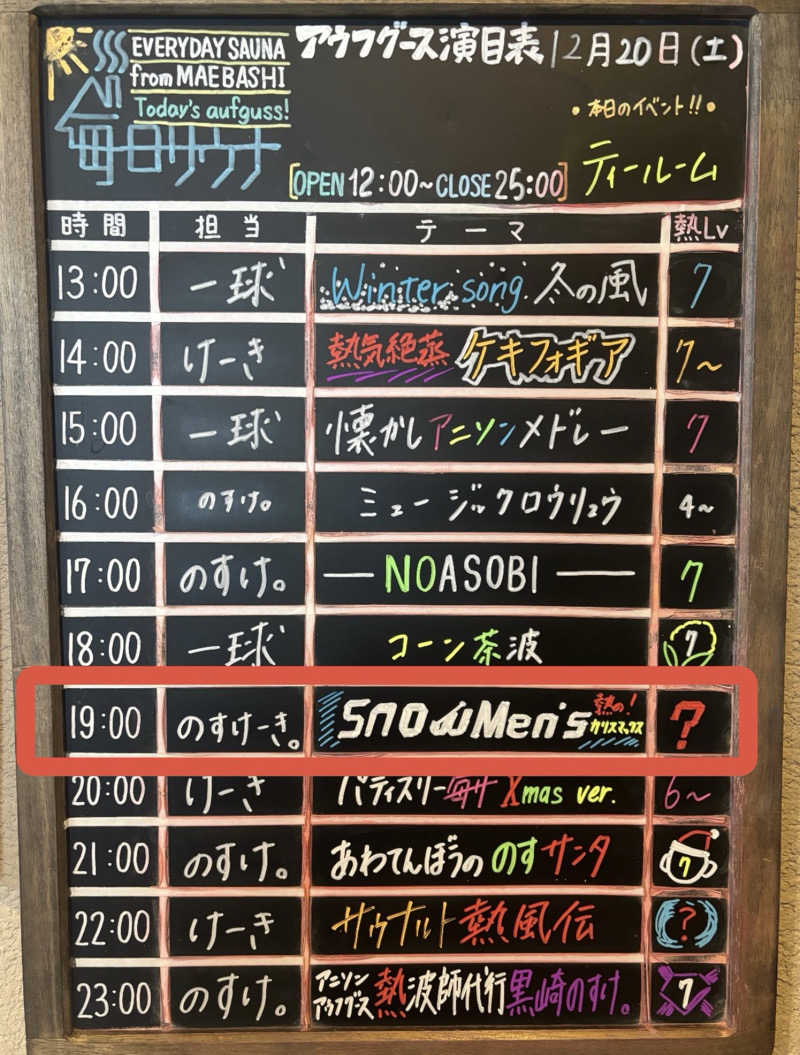 EVERYDAY SAUNA
from MAEBASHI
Today's aufguss!
毎日サウナ
アウフグース演目表 12月20日(土)
•本日のイベント!!•
ティールーム
[OPEN 12:00~CLOSE 25:00]
時間 担当 テーマ 熱Lv
13:00 一球 Winter song 冬の風 7
14:00 けーき 熱気絶蒸 ケキフォギア 7~
15:00 一球 懐かしアニソンメドレー 7
16:00 のすけ。 ミュージックロウリュウ 4~
17:00 のすけ。 — NOASOBI — 7
18:00 一球 コーン茶波 7
19:00 のすけーき。 SnowMen's 熱の! カリスマックス ?
20:00 けーき パティスリー毎サ Xmas ver. 6~
21:00 のすけ。 あわてんぼうの のすサンタ 7
22:00 けーき サウナルト 熱風伝 ?
23:00 のすけ。 アニソンアウフグース 熱波師代行 黒崎のすけ。 7